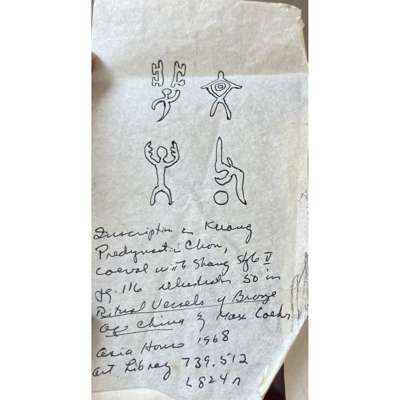 Inscription on Kuang
Predynastic Chou,
coeval with Shang Style V
pg. 116 illustration 50 in
Ritual Vessels of Bronze
Age China by Max Loehr
Asia House 1968
Art Library 739.512
L824r